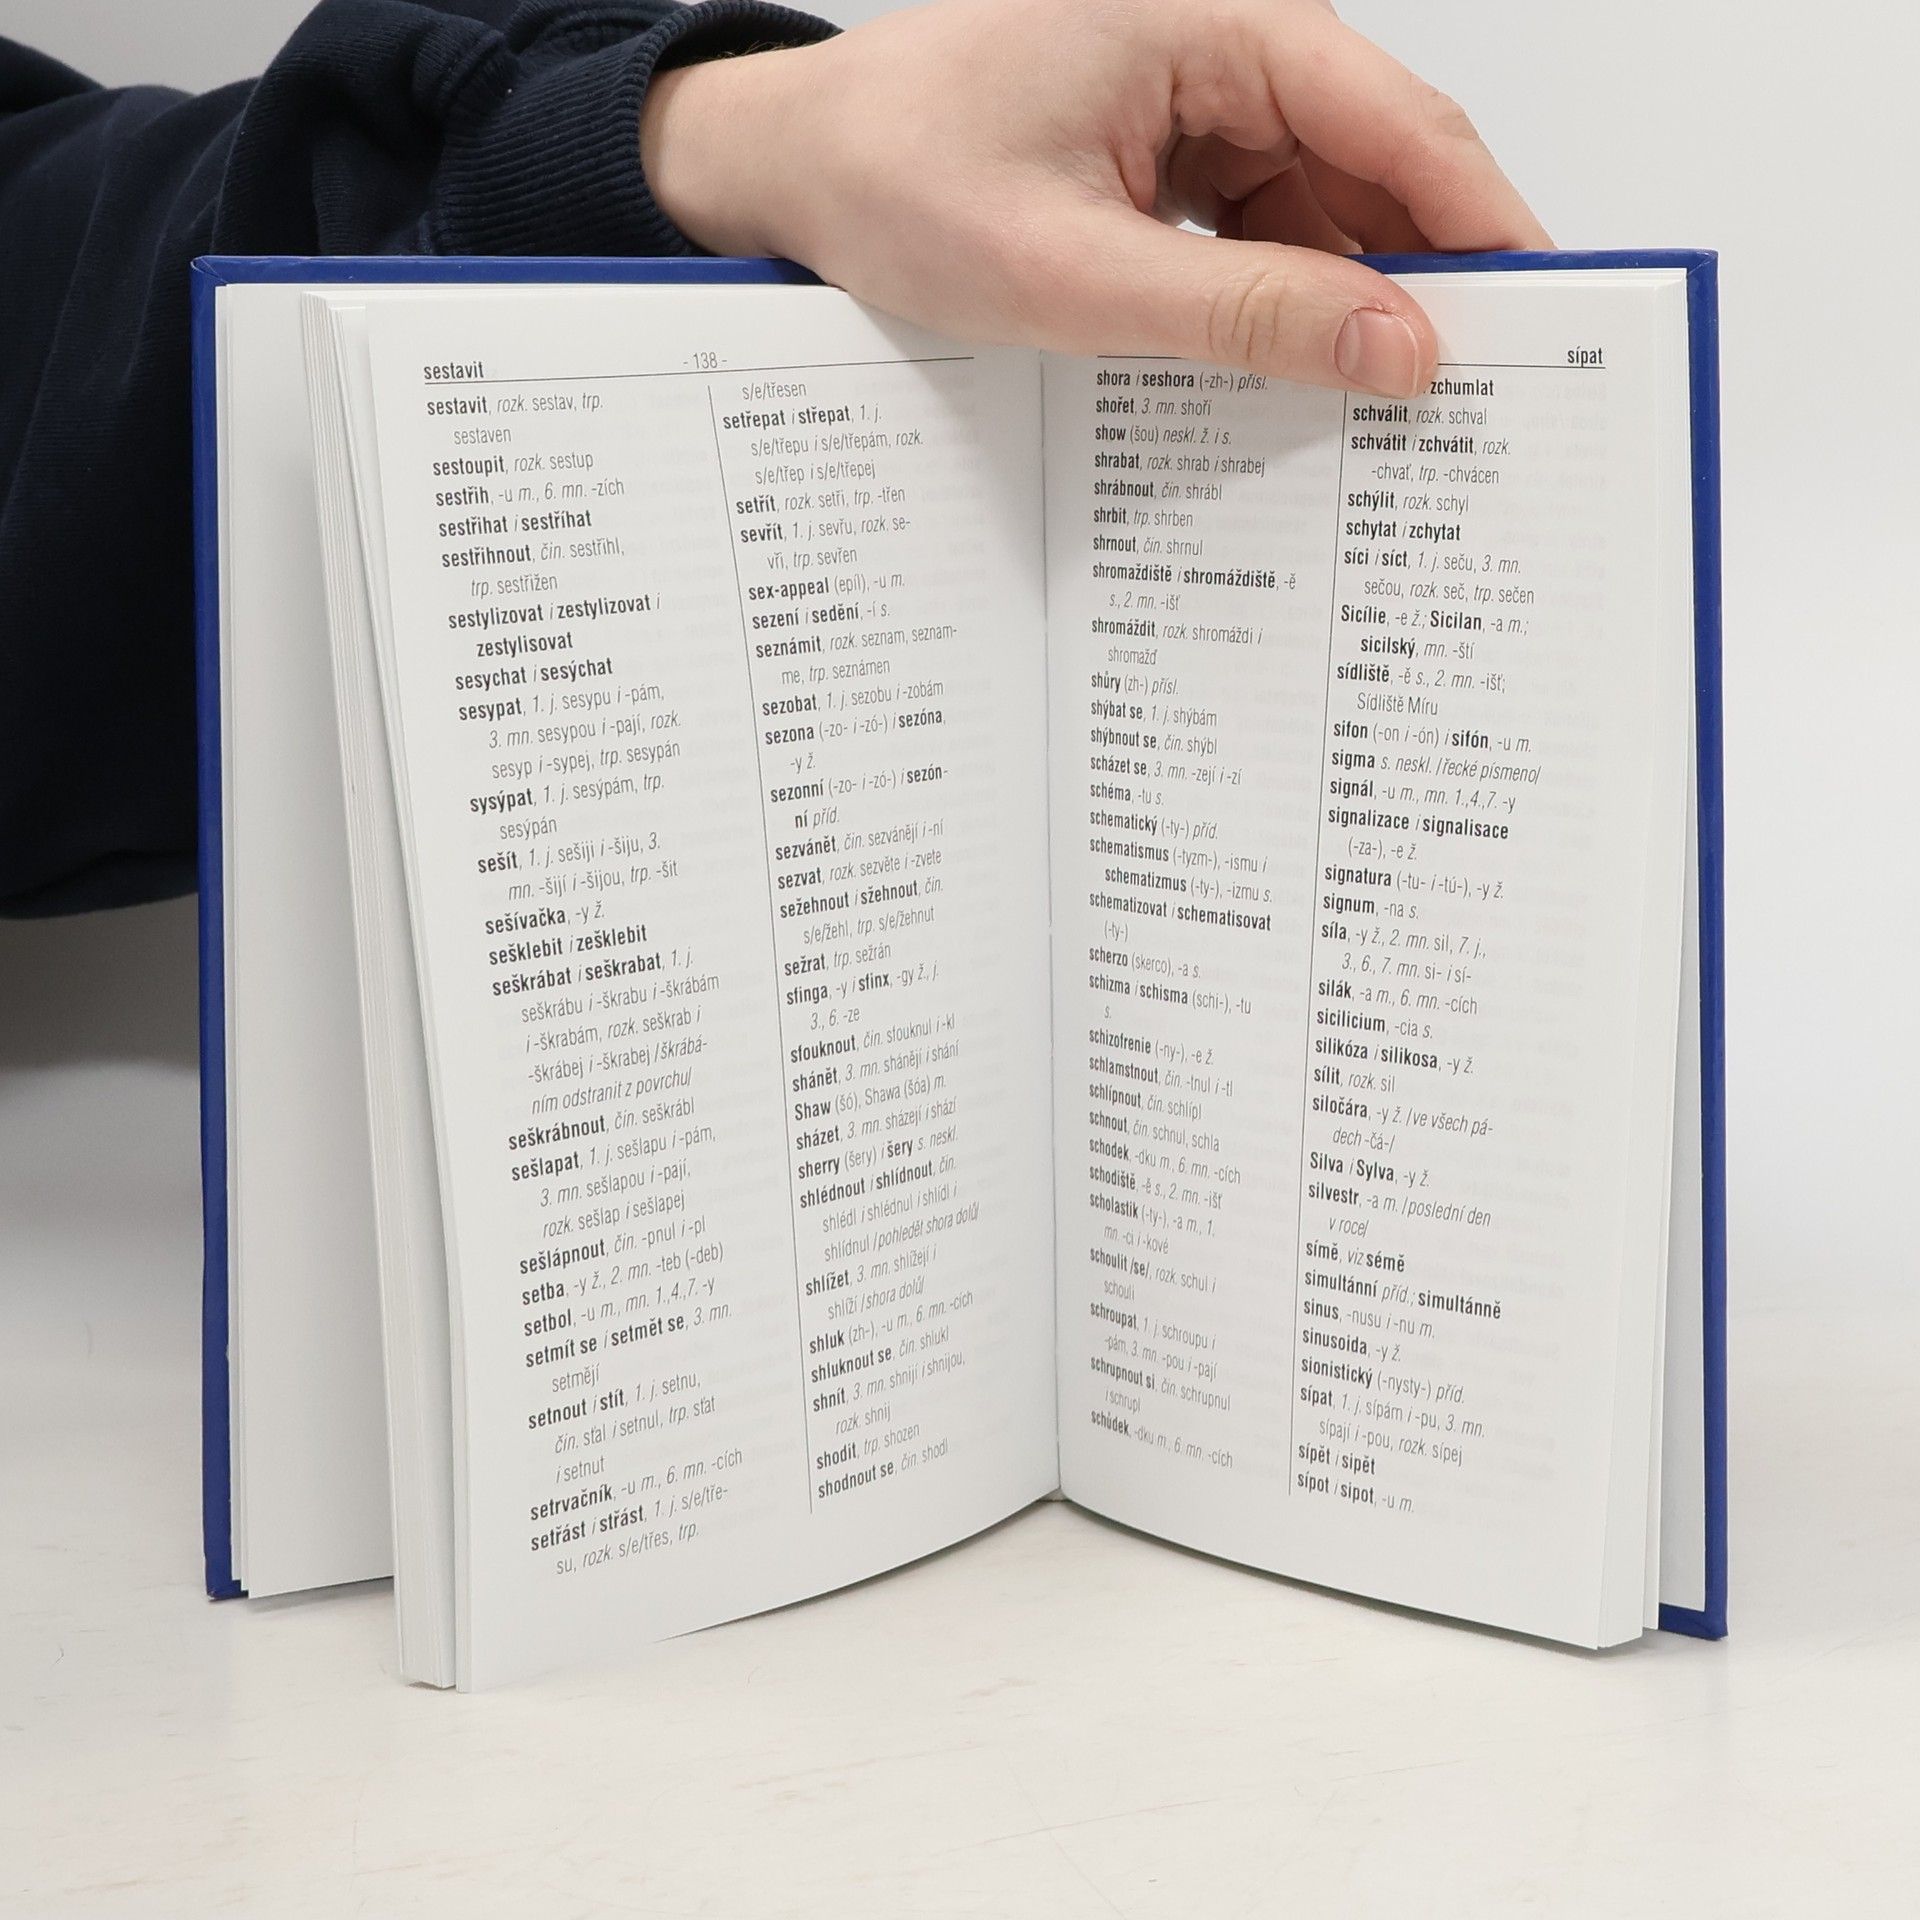 sestavit - 138 -
sestavit, rozk. sestav, trp.
sestaven
sestoupit, rozk. sestup
sestřih, -u m., 6. mn. -zích
sestřihat i sestříhat
sestřihnout, čin. sestřihl,
trp. sestřižen
sestylizovat i zestylizovat i
zestylisovat
sesychat i sesýchat
sesypat, 1. j. sesypu i -pám,
3. mn. sesypou i -pají, rozk.
sesyp i -sypej, trp. sesypán
sysýpat, 1. j. sesýpám, trp.
sesýpán
sešít, 1. j. sešiji i -šiju, 3.
mn. -šijí i -šijou, trp. -šit
sešívačka, -y ž.
sešklebit i zešklebit
seškrábat i seškrabat, 1. j.
seškrábu i -škrabu i -škrábám
i -škrabám, rozk. seškrab i
-škrábej i -škrabej /škrábá-
ním odstranit z povrchu/
seškrábnout, čin. seškrábl
sešlapat, 1. j. sešlapu i -pám,
3. mn. sešlapou i -pají,
rozk. sešlap i sešlapej
sešlápnout, čin. -pnul i -pl
setba, -y ž., 2. mn. -teb (-deb)
setbol, -u m., mn. 1.,4.,7. -y
setmít se i setmět se, 3. mn.
setmějí
setnout i stít, 1. j. setnu,
čin. sťal i setnul, trp. sťat
i setnut
setrvačník, -u m., 6. mn. -cích
setřást i střást, 1. j. s/e/tře-
su, rozk. s/e/třes, trp.
s/e/třesen
setřepat i střepat, 1. j.
s/e/třepu i s/e/třepám, rozk.
s/e/třep i s/e/třepej
setřít, rozk. setři, trp. -třen
sevřít, 1. j. sevřu, rozk. se-
vři, trp. sevřen
sex-appeal (epíl), -u m.
sezení i sedění, -í s.
seznámit, rozk. seznam, seznam-
me, trp. seznámen
sezobat, 1. j. sezobu i -zobám
sezona (-zo- i -zó-) i sezóna,
-y ž.
sezonní (-zo- i -zó-) i sezón-
ní příd.
sezvánět, čin. sezvánějí i -ní
sezvat, rozk. sezvěte i -zvete
sežehnout i sžehnout, čin.
s/e/žehl, trp. s/e/žehnut
sežrat, trp. sežrán
sfinga, -y i sfinx, -gy ž., j.
3., 6. -ze
sfouknout, čin. sfouknul i -kl
shánět, 3. mn. shánějí i shání
Shaw (šó), Shawa (šóa) m.
sházet, 3. mn. sházejí i shází
sherry (šery) i šery s. neskl.
shlédnout i shlídnout, čin.
shlédl i shlédnul i shlídl i
shlídnul /pohleděl shora dolů/
shlížet, 3. mn. shlížejí i
shlíží /shora dolů/
shluk (zh-), -u m., 6. mn. -cích
shluknout se, čin. shlukl
shnít, 3. mn. shnijí i shnijou,
rozk. shnij
shodit, trp. shozen
shodnout se, čin. shodl
sípat
shora i seshora (-zh-) přísl.
shořet, 3. mn. shoří
show (šou) neskl. ž. i s.
shrabat, rozk. shrab i shrabej
shrábnout, čin. shrábl
shrbit, trp. shrben
shrnout, čin. shrnul
shromaždiště i shromáždiště, -ě
s., 2. mn. -išť
shromáždit, rozk. shromáždi i
shromažď
shůry (zh-) přísl.
shýbat se, 1. j. shýbám
shýbnout se, čin. shýbl
scházet se, 3. mn. -zejí i -zí
schéma, -tu s.
schematický (-ty-) příd.
schematismus (-tyzm-), -ismu i
schematizmus (-ty-), -izmu s.
schematizovat i schematisovat
(-ty-)
scherzo (skerco), -a s.
schizma i schisma (schi-), -tu
s.
schizofrenie (-ny-), -e ž.
schlamstnout, čin. -tnul i -tl
schlípnout, čin. schlípl
schnout, čin. schnul, schla
schodek, -dku m., 6. mn. -cích
schodiště, -ě s., 2. mn. -išť
scholastik (-ty-), -a m., 1.
mn. -ci i -kové
schoulit /se/, rozk. schul i
schouli
schroupat, 1. j. schroupu i
-pám, 3. mn. -pou i -pají
schrupnout si, čin. schrupnul
i schrupl
schůdek, -dku m., 6. mn. -cích
zchumlat
schválit, rozk. schval
schvátit i zchvátit, rozk.
-chvať, trp. -chvácen
schýlit, rozk. schyl
schytat i zchytat
síci i síct, 1. j. seču, 3. mn.
sečou, rozk. seč, trp. sečen
Sicílie, -e ž.; Sicilan, -a m.;
sicilský, mn. -ští
sídliště, -ě s., 2. mn. -išť;
Sídliště Míru
sifon (-on i -ón) i sifón, -u m.
sigma s. neskl. /řecké písmeno/
signál, -u m., mn. 1.,4.,7. -y
signalizace i signalisace
(-za-), -e ž.
signatura (-tu- i -tú-), -y ž.
signum, -na s.
síla, -y ž., 2. mn. sil, 7. j.,
3., 6., 7. mn. si- i sí-
silák, -a m., 6. mn. -cích
sicilicium, -cia s.
silikóza i silikosa, -y ž.
sílit, rozk. sil
siločára, -y ž. /ve všech pá-
dech -čá-/
Silva i Sylva, -y ž.
silvestr, -a m. /poslední den
v roce/
símě, viz sémě
simultánní příd.; simultánně
sinus, -nusu i -nu m.
sinusoida, -y ž.
sionistický (-nysty-) příd.
sípat, 1. j. sípám i -pu, 3. mn.
sípají i -pou, rozk. sípej
sípět i sipět
sípot i sipot, -u m.